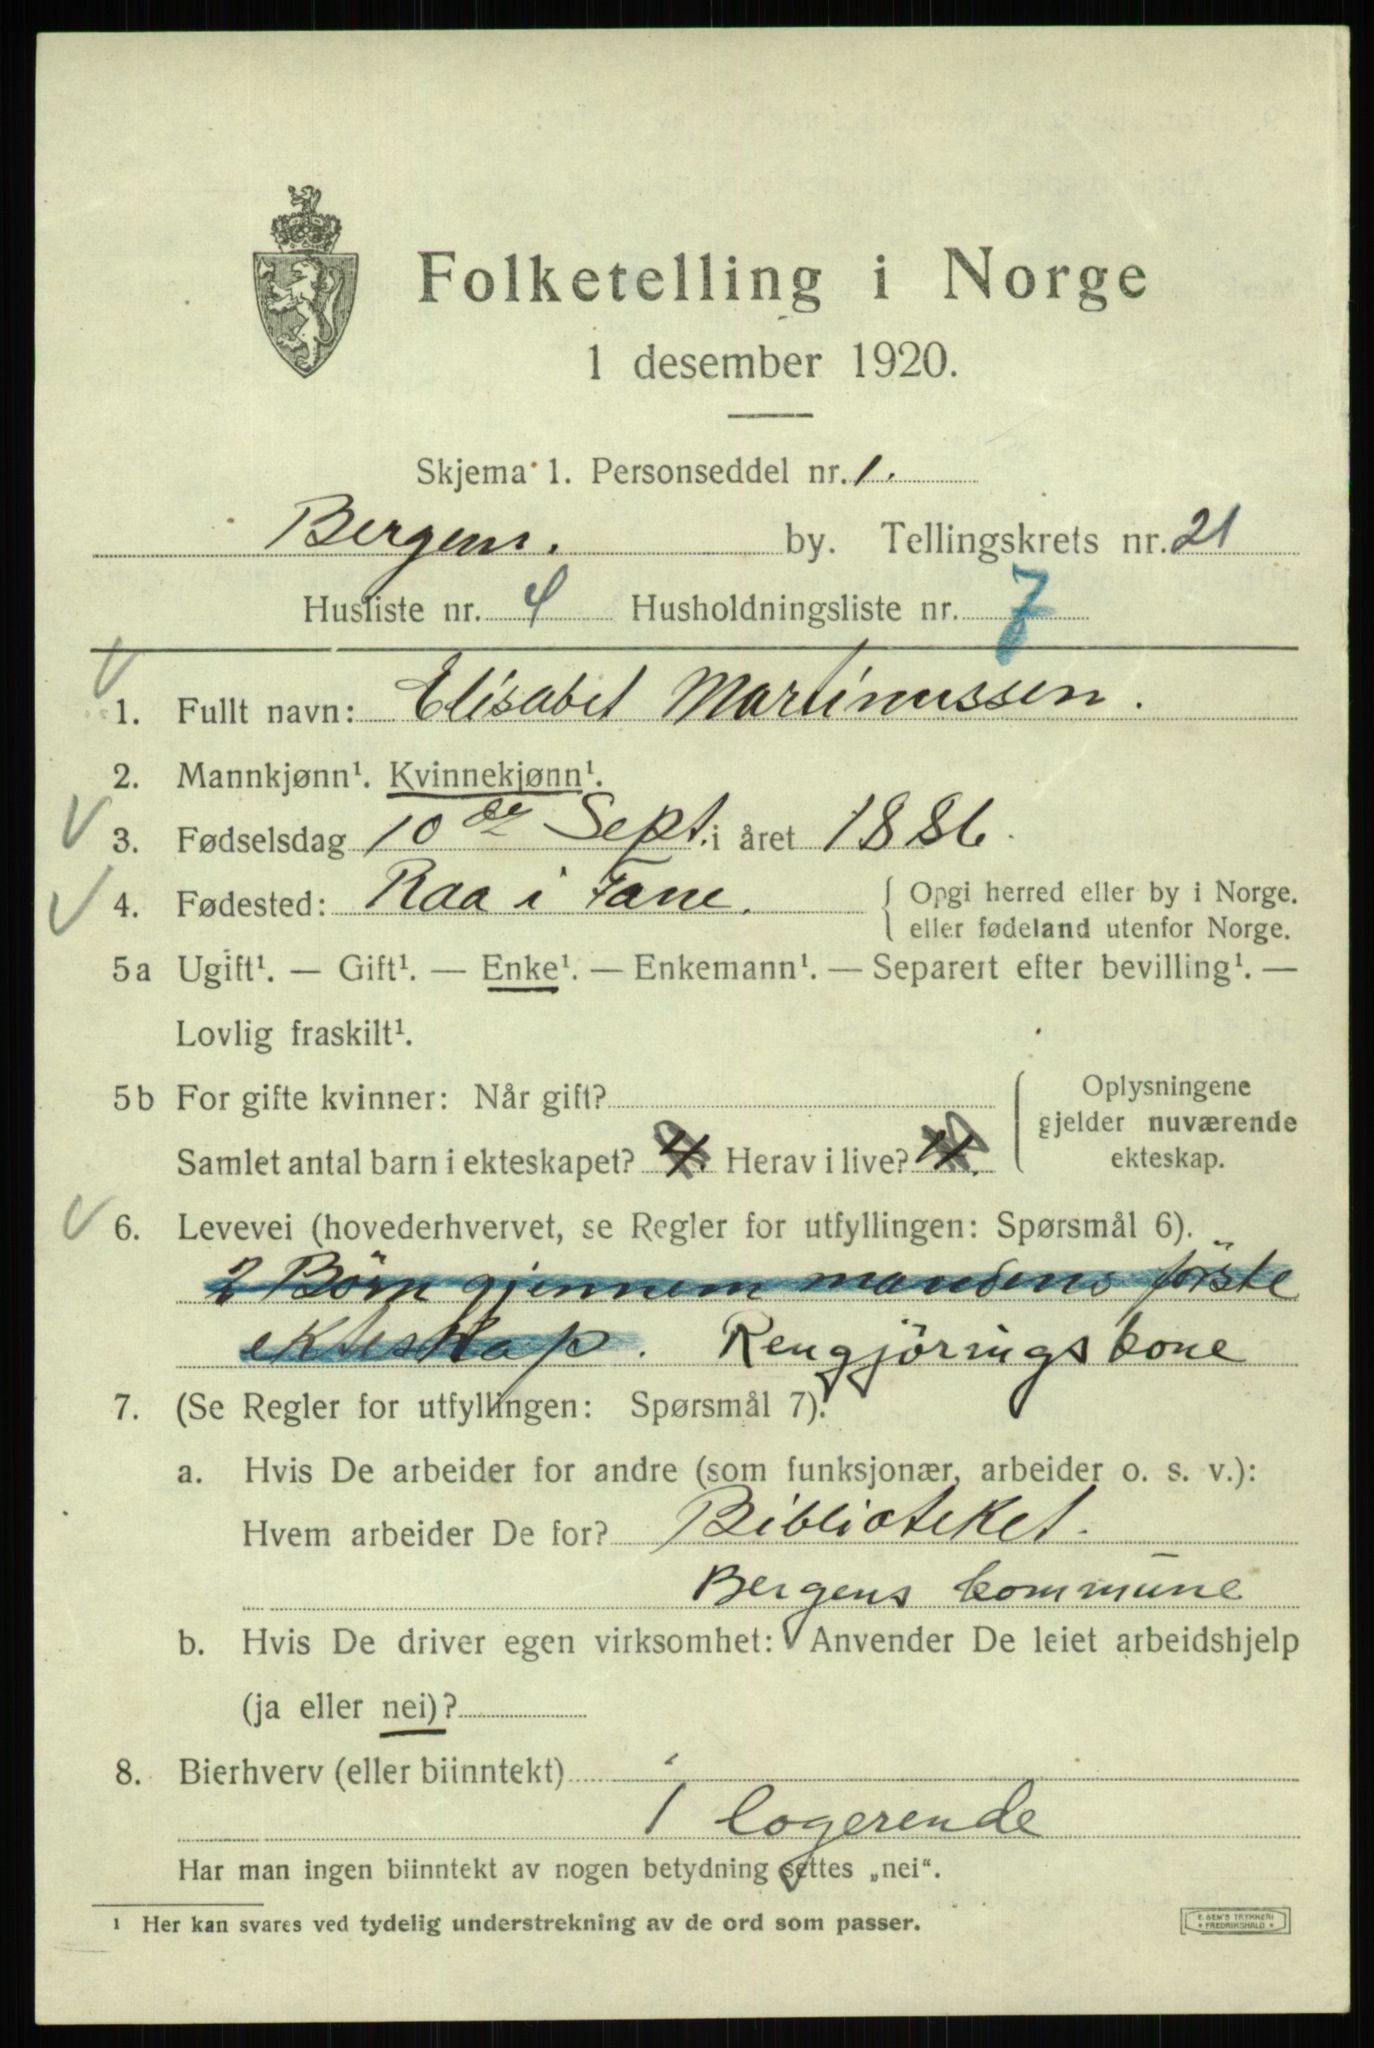 Folketelling i Norge
1 desember 1920.
Skjema 1. Personseddel nr. 1.
Bergens. by. Tellingskrets nr. 21
Husliste nr. 4 Husholdningsliste nr. 7
1. Fullt navn: Elisabet Martinussen.
2. Mannkjønn¹. Kvinnekjønn¹.
3. Fødselsdag 10 de Sept. i året 1886.
4. Fødested: Raa i Fane. { Opgi herred eller by i Norge.
eller fødeland utenfor Norge.
5a Ugift¹. — Gift¹. — Enke¹. — Enkemann¹. — Separert efter bevilling¹. —
Lovlig fraskilt¹.
5b For gifte kvinner: Når gift? Oplysningene
gjelder nuværende
Samlet antal barn i ekteskapet? 4. Herav i live? 4. ekteskap.
6. Levevei (hovederhvervet, se Regler for utfyllingen: Spørsmål 6).
2 Börn gjennem mandens förste
ekteskap. Rengjöringskone
7. (Se Regler for utfyllingen: Spørsmål 7).
a. Hvis De arbeider for andre (som funksjonær, arbeider o. s. v.):
Hvem arbeider De for? Biblioteket.
Bergens kommune
b. Hvis De driver egen virksomhet: Anvender De leiet arbeidshjelp
(ja eller nei)?
8. Bierhverv (eller biinntekt)
1 logerende
Har man ingen biinntekt av nogen betydning settes „nei“.
¹ Her kan svares ved tydelig understrekning av de ord som passer.
FREDRIKSHALD